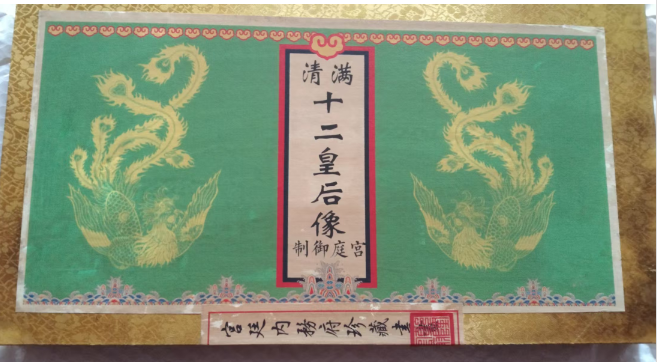 满清
十二皇后像
宫庭御制
宫廷内務府珍藏畫